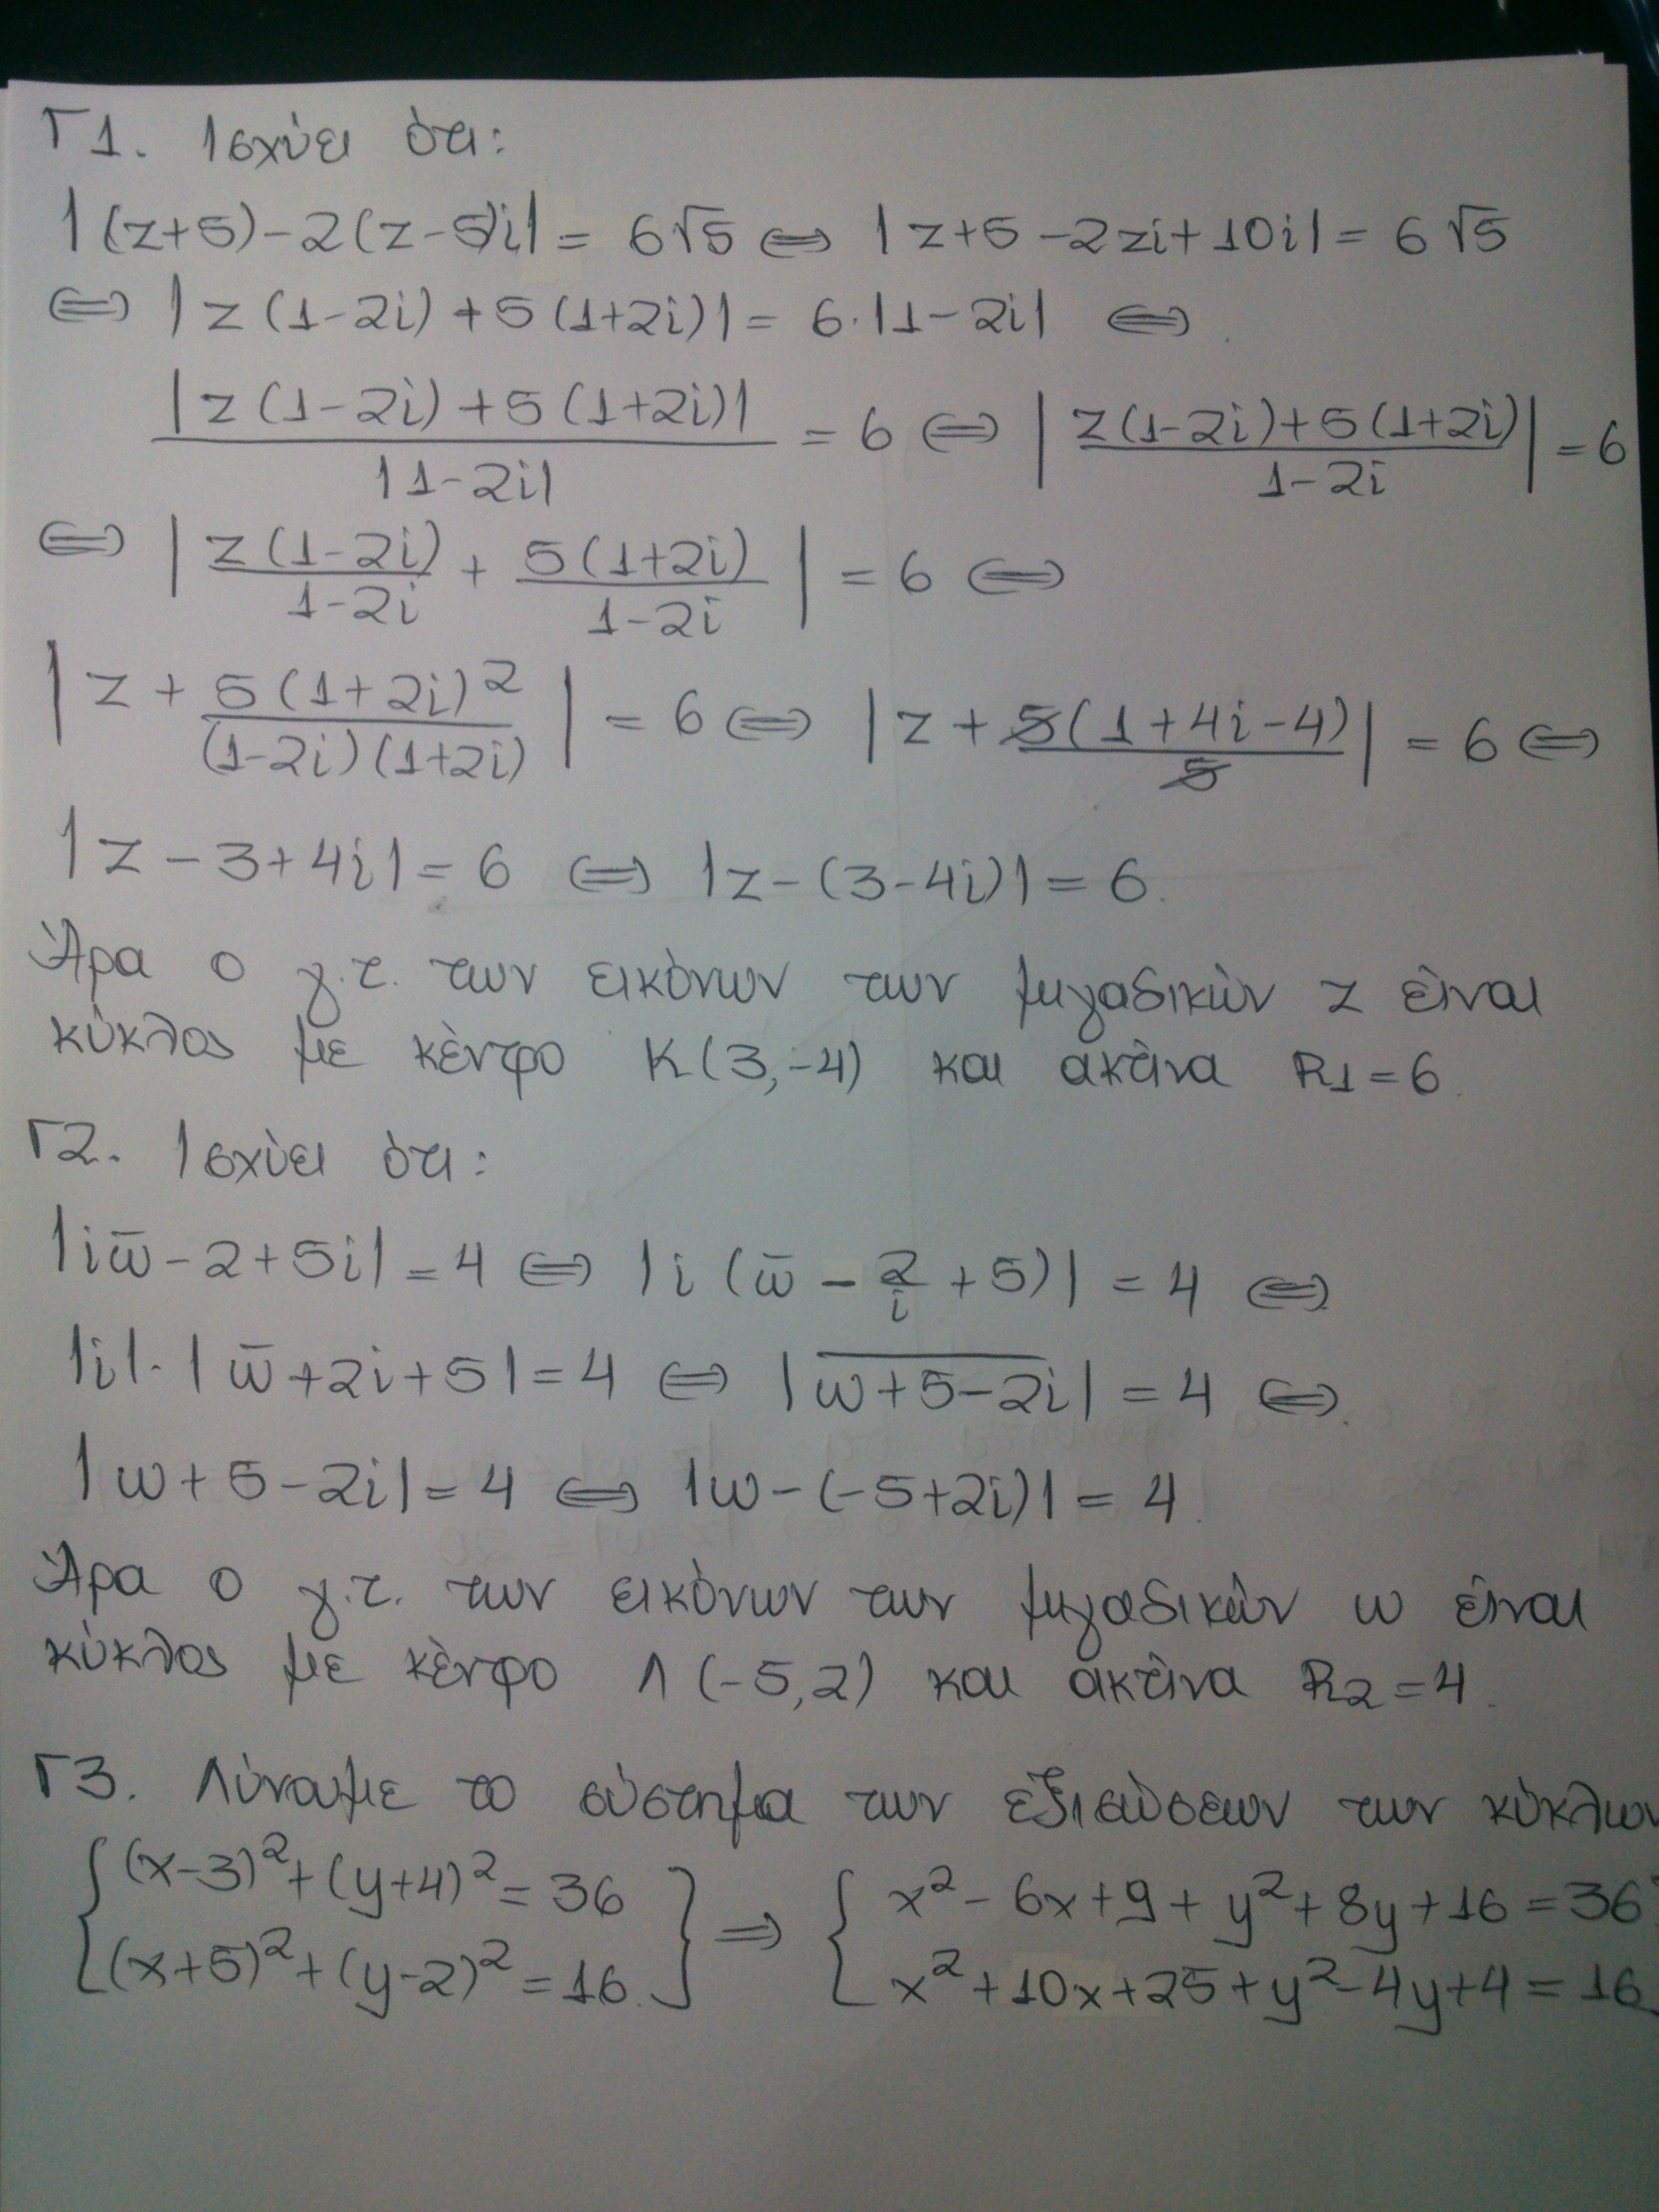 Γ1. Ισχύει ότι:
|(z+5)-2(z-5)i| = 6√5 ⇔ |z+5-2zi+10i| = 6√5
⇔ |z(1-2i)+5(1+2i)| = 6·|1-2i| ⇔
|z(1-2i)+5(1+2i)| / |1-2i| = 6 ⇔ | (z(1-2i)+5(1+2i)) / (1-2i) | = 6
⇔ | z(1-2i)/(1-2i) + 5(1+2i)/(1-2i) | = 6 ⇔
| z + 5(1+2i)²/((1-2i)(1+2i)) | = 6 ⇔ | z + 5(1+4i-4)/5 | = 6 ⇔
|z-3+4i| = 6 ⇔ |z-(3-4i)| = 6.
Άρα ο γ.τ. των εικόνων των μιγαδικών z είναι
κύκλος με κέντρο K(3,-4) και ακτίνα R₁=6.
Γ2. Ισχύει ότι:
|iw̄-2+5i| = 4 ⇔ |i(w̄ - 2/i + 5)| = 4 ⇔
|i|·|w̄+2i+5| = 4 ⇔ |w̅+̅5̅-̅2̅i̅| = 4 ⇔
|w+5-2i| = 4 ⇔ |w-(-5+2i)| = 4.
Άρα ο γ.τ. των εικόνων των μιγαδικών w είναι
κύκλος με κέντρο Λ(-5,2) και ακτίνα R₂=4.
Γ3. Λύνουμε το σύστημα των εξισώσεων των κύκλων
{ (x-3)²+(y+4)² = 36 } ⇒ { x²-6x+9+y²+8y+16 = 36
{ (x+5)²+(y-2)² = 16. } { x²+10x+25+y²-4y+4 = 16